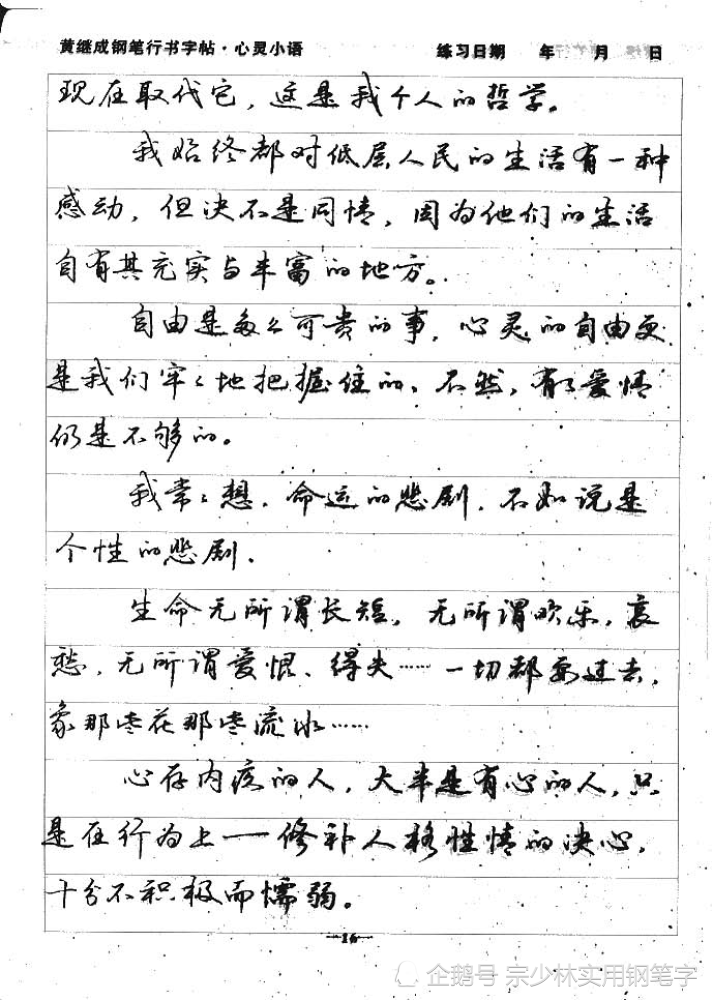 黄继成钢笔行书字帖·心灵小语 练习日期 年 月 日
现在取代它，这是我个人的哲学。
我始终都对低层人民的生活有一种
感动，但决不是同情，因为他们的生活
自有其充实与丰富的地方。
自由是多么可贵的事，心灵的自由更
是我们牢牢地把握住的、不然，有了爱情
仍是不够的。
我常常想，命运的悲剧，不如说是
个性的悲剧．
生命无所谓长短，无所谓欢乐，哀
愁，无所谓爱恨、得失……一切都要过去，
象那些花那些流水……
心存内疚的人，大半是有心的人，只
是在行为上——修补人格性情的决心，
十分不积极而懦弱。
—16—
企鹅号 宗少林实用钢笔字